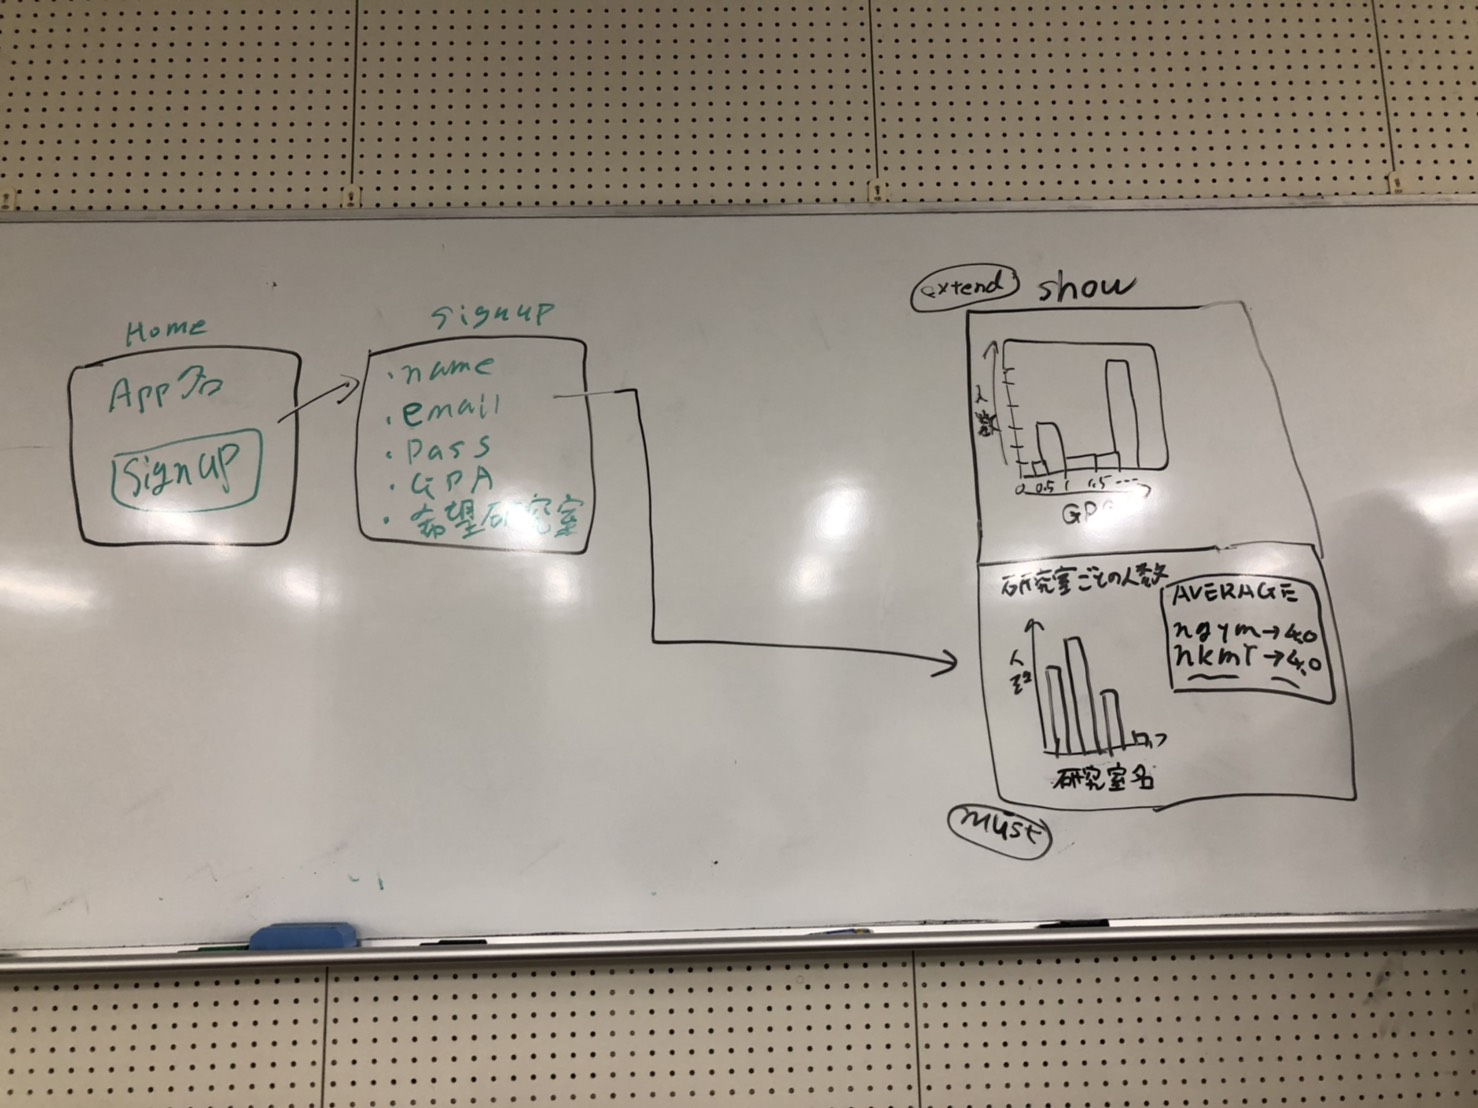 Home
App名
Signup
Signup
・name
・email
・pass
・GPA
・希望研究室
extend show
人数
0 0.5 1 1.5 ---
GPA
研究室ごとの人数
人数
研究室名
AVERAGE
ngym→4.0
nkmr→4.0
must